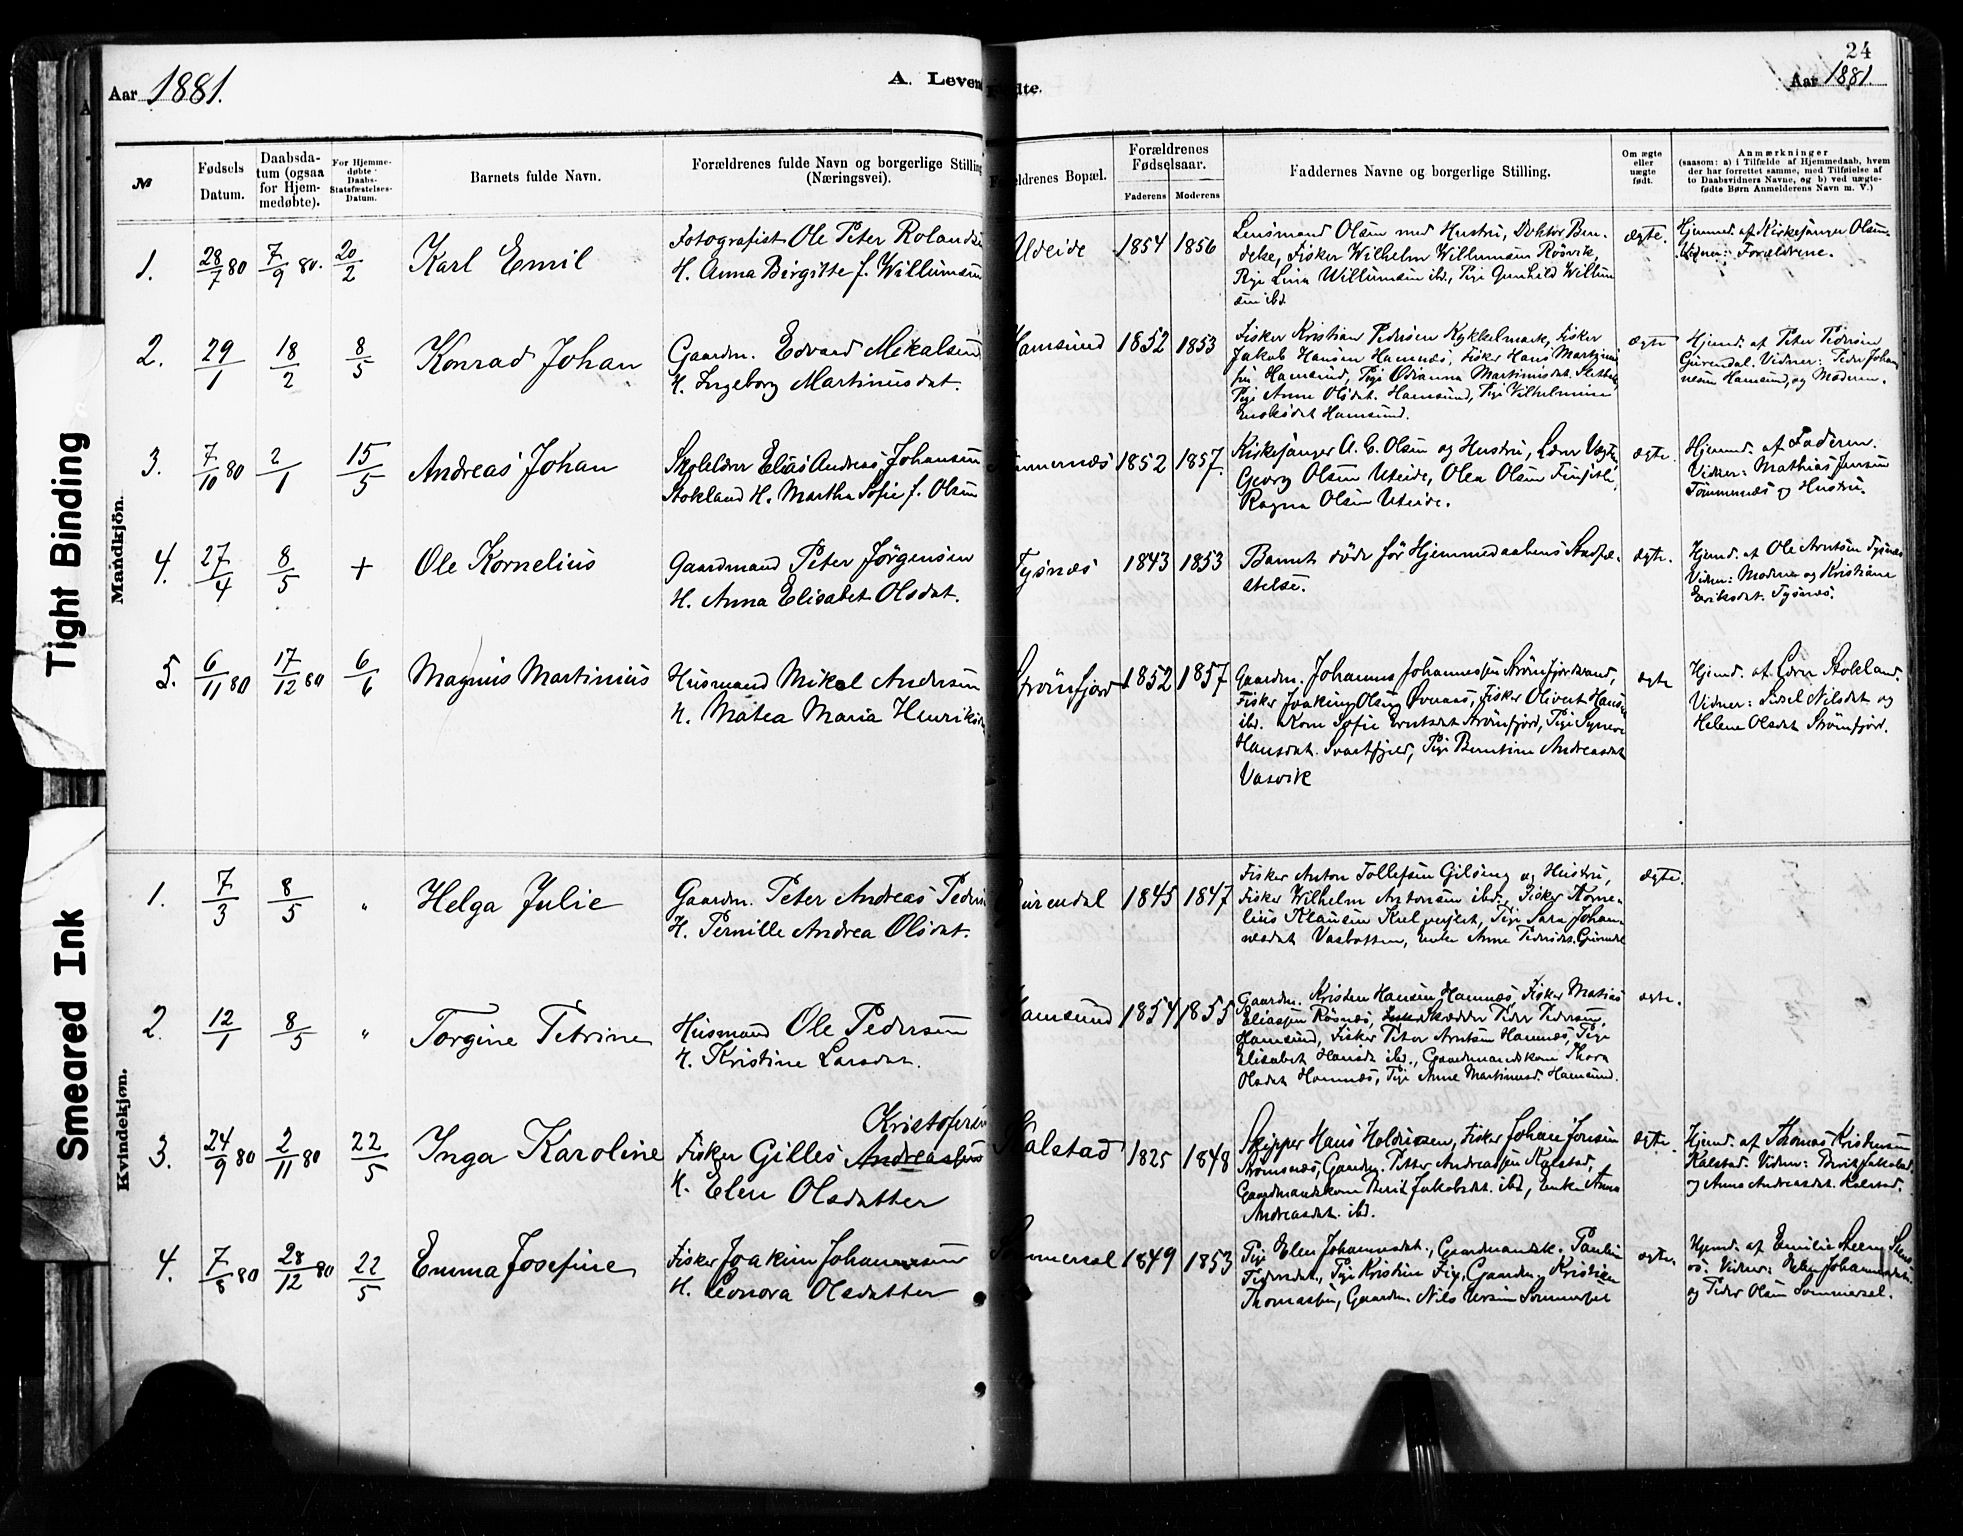 24
Aar 1881.
A. Leven
dte.
Aar 1881.
№
Fødsels Datum.
Daabsda-
tum (ogsaa
for Hjem-
medøbte).
For Hjemme-
døbte
Daabs-
Statsfæstelses-
Datum.
Barnets fulde Navn.
Forældrenes fulde Navn og borgerlige Stilling
(Næringsvei).
ldrenes Bopæl.
Forældrenes
Fødselsaar.
Faderens
Moderens
Faddernes Navne og borgerlige Stilling.
Om ægte
eller
uægte
født.
Anmærkninger
(saasom: a) i Tilfælde af Hjemmedaab, hvem
der har forrettet samme, med Tilføielse af
to Daabsvidners Navne, og b) ved uægte-
fødte Børn Anmelderens Navn m. V.)
Tight Binding
Smeared Ink
Mandkjön.
1. 28/7 80 7/9 80. 20/2 Karl Emil
Fotografist Ole Peter Rolands
H. Anna Birgitte f. Willumsen
Uteide 1854 1856
Lensmand Olsen med Hustru, Doktor Ben-
deke, Fisker Wilhelm Willumsen Røsvik,
Pige Lina Willumsen ibd., Pige Gunhild Willum
sen ibd
ægte.
Hjemmed. af Kirkesanger Olsen.
Vidner: Forældrene.
2. 29/1 18/2 8/5 Konrad Johan
Gaardm. Edvard Mikalsen
H. Ingeborg Martinusdat.
Hamsund 1852 1853
Fisker Kristian Pedersen Kykkelmark, Fisker
Jakob Hansen Hamnæs, Fisker Hans Martinus
Hamsund, Pige Martinusdat.
Pige Anne Olsdat. Hamsund, Pige Vilhelmine
Hamsund.
ægte
Hjemd. af Peter Pedersen
Giurendal. Vidner: Peder Johan
nesen Hamsund, og Moderen.
3. 7/10 80 2/1 15/5 Andreas Johan
Skolelærer Elias Andreas Johansen
Stokland H. Martha Sofie f. Olsen
1852 1857
Kirkesanger A. C. Olsen og Hustru, Lærer
Georg Olsen Uteide, Olea Olsen
Ragna Olsen Uteide.
ægte
Hjemd. af Faderen.
Vidner: Mathias Jensen
Tømmernæs og Hustru.
4. 27/4 8/5 + Ole Kornelius
Gaardmand Peter Jørgensen
H. Anna Elisabet Olsdat.
Tysnæs 1843 1853
Barnet døde før Hjemmedaabens Stadfæ-
stelse.
ægte.
Hjemd. af Ole Arntsen Tysnæs
Vidner: Moderen og Kristiane
Eriksdat. Tysnæs.
5. 6/11 80 17/12 80 6/6 Magnus Martinius
Husmand Mikal Andersen
H. Matea Maria Henriks
Strømfjord 1852 1857
Gaardm. Johannes Johannessen Strømfjordstrand,
Fisker Joakim Olsen Fisker Olivert Hansen
ibd. Kone Sofie Strømfjord, Pige
Hansdat. Svartfjeld, Pige Berntine Andreasdat
Vasvik
ægte
Hjemd. af Lærer Stokland.
Vidner: Sirsel Nilsdat og
Helene Olsdat Strømfjord.
Kvindekjøn.
1. 7/3 8/5 " Helga Julie
Gaardm. Peter Andreas Peders
H. Pernille Andrea Olsdat.
Giurendal 1845 1847
Fisker Anton Tollefsen og Hustru,
Fisker Wilhelm Antonsen ibd., Fisker Korne-
lius Klausen Pige Sara Johan-
nesdat Vasbotten, Enke Anne Pedersdat. Giurendal
ægte.
2. 12/1 8/5 " Torgine Petrine
Husmand Ole Pedersen
H. Kristine Larsdat.
Hamsund 1854 1855
Gaardm. Kristen Hansen Hamnæs, Fisker Matias
Eliassen Røsnæs, Skrædder Peder Pedersen,
Hamsund, Fisker Peter Arntsen Hamnæs, Pige
Elisabet Hansd. ibd., Gaardmandskone Thora
Olsdat Hamnæs, Pige Anne Martinusd. Hamsund.
ægte.
3. 24/9 80 2/11 80 22/5 Inga Karoline
Kristofersen
Fisker Gilles Andreassen
H. Elen Olsdatter
Kalstad 1825 1848
Skipper Hans Fisker Johan Jensen
Strømsnæs, Gaardm. Petter Andreassen Kalstad,
Gaardmandskone Berit Jakobsdat. ibd, Enke Anna
Andreasdat. ibd.
ægte.
Hjemd. af Thomas Kristensen
Kalstad. Vidner: Berit Jakobsd.
og Anna Andreasdat. Kalstad.
4. 7/8 80 28/12 80 22/5 Emma Josefine
Fisker Joakim Johannessen
H. Leonora Olsdatter
Sommersel 1849 1853
Pige Elen Johannesdat., Gaardmandsk. Pauline
Pedersdat., Pige Kristine Fix, Gaardm. Kristian
Thomassen, Gaardm. Nils Sommersel
ægte.
Hjemd. af Emilie Steen
Vidner: Elen Johannesdat.
og Peder Olsen Sommersel.